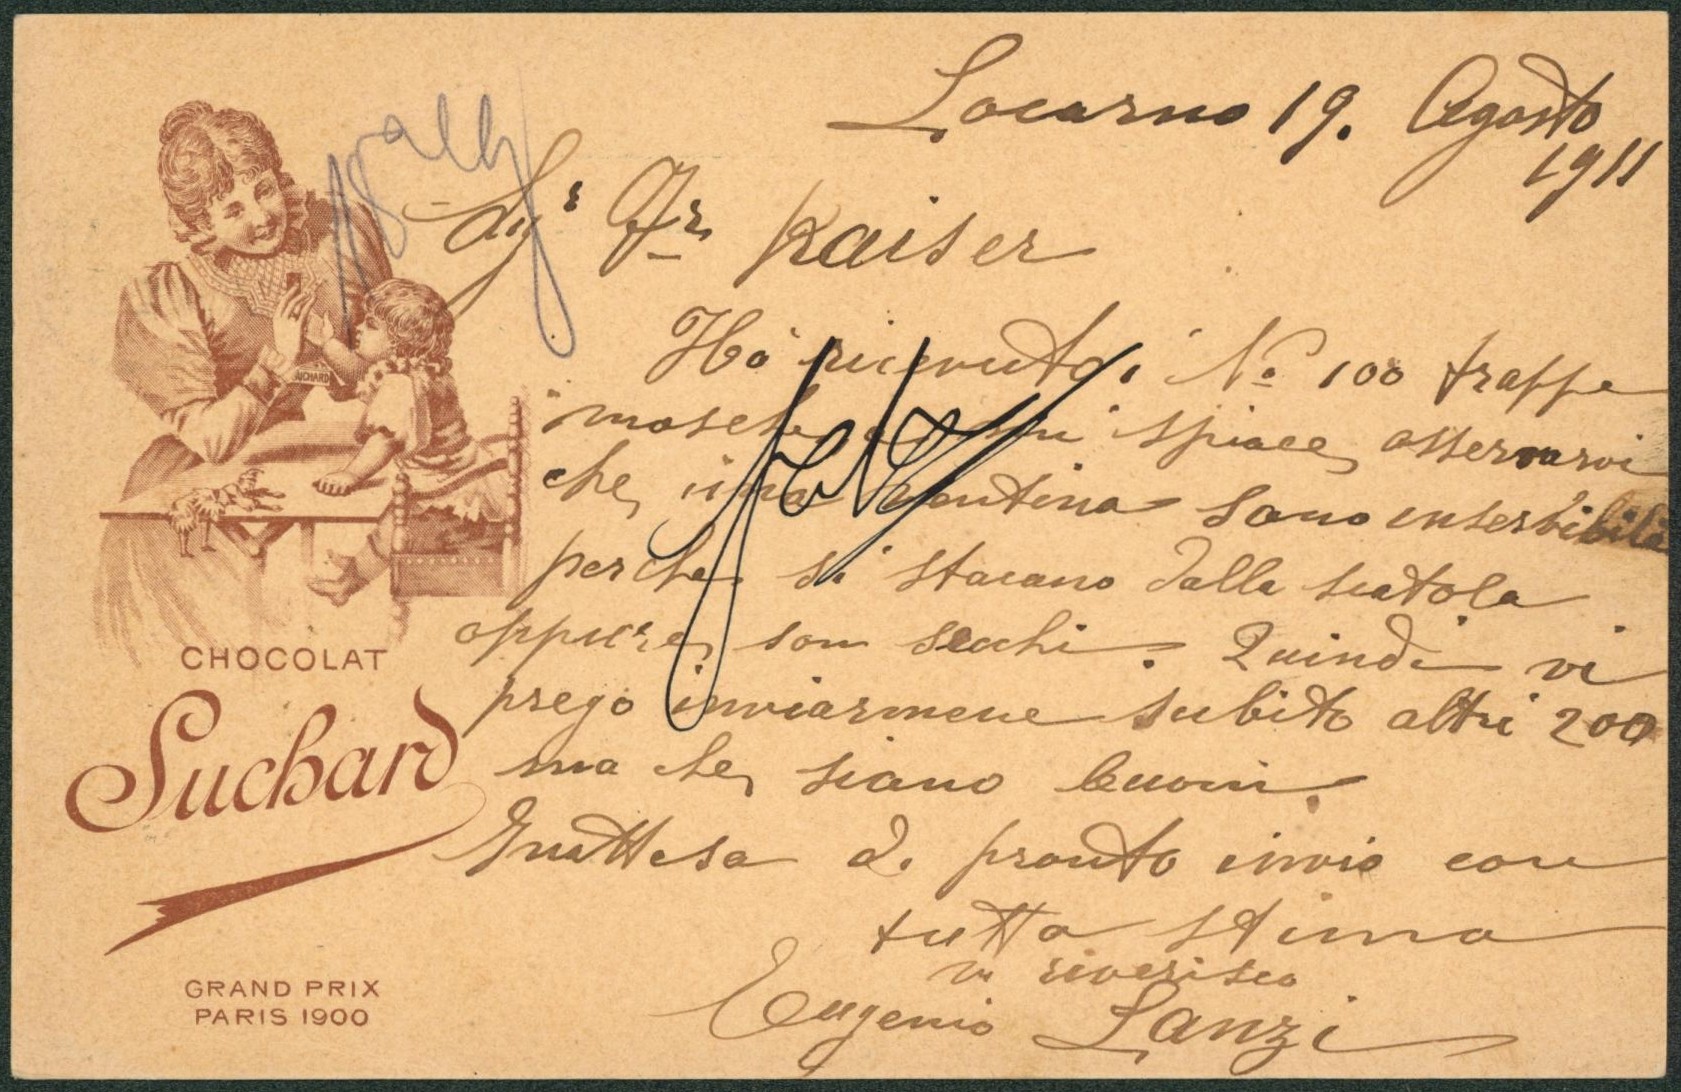 Locarno 19. Agosto
1911
Sigr Fr Kaiser
Hò ricevuto i No. 100 trappe
mosche mi spiace osservarvi
che una ventina sono inserbibili
perche si stacano dalla scatola
oppure son secchi. Quindi vi
prego inviarmene subito altri 200
ma che siano buoni.
In attesa di pronto invio con
tutta stima
vi riverisco
Eugenio Lanzi
SUCHARD
CHOCOLAT
Suchard
GRAND PRIX
PARIS 1900